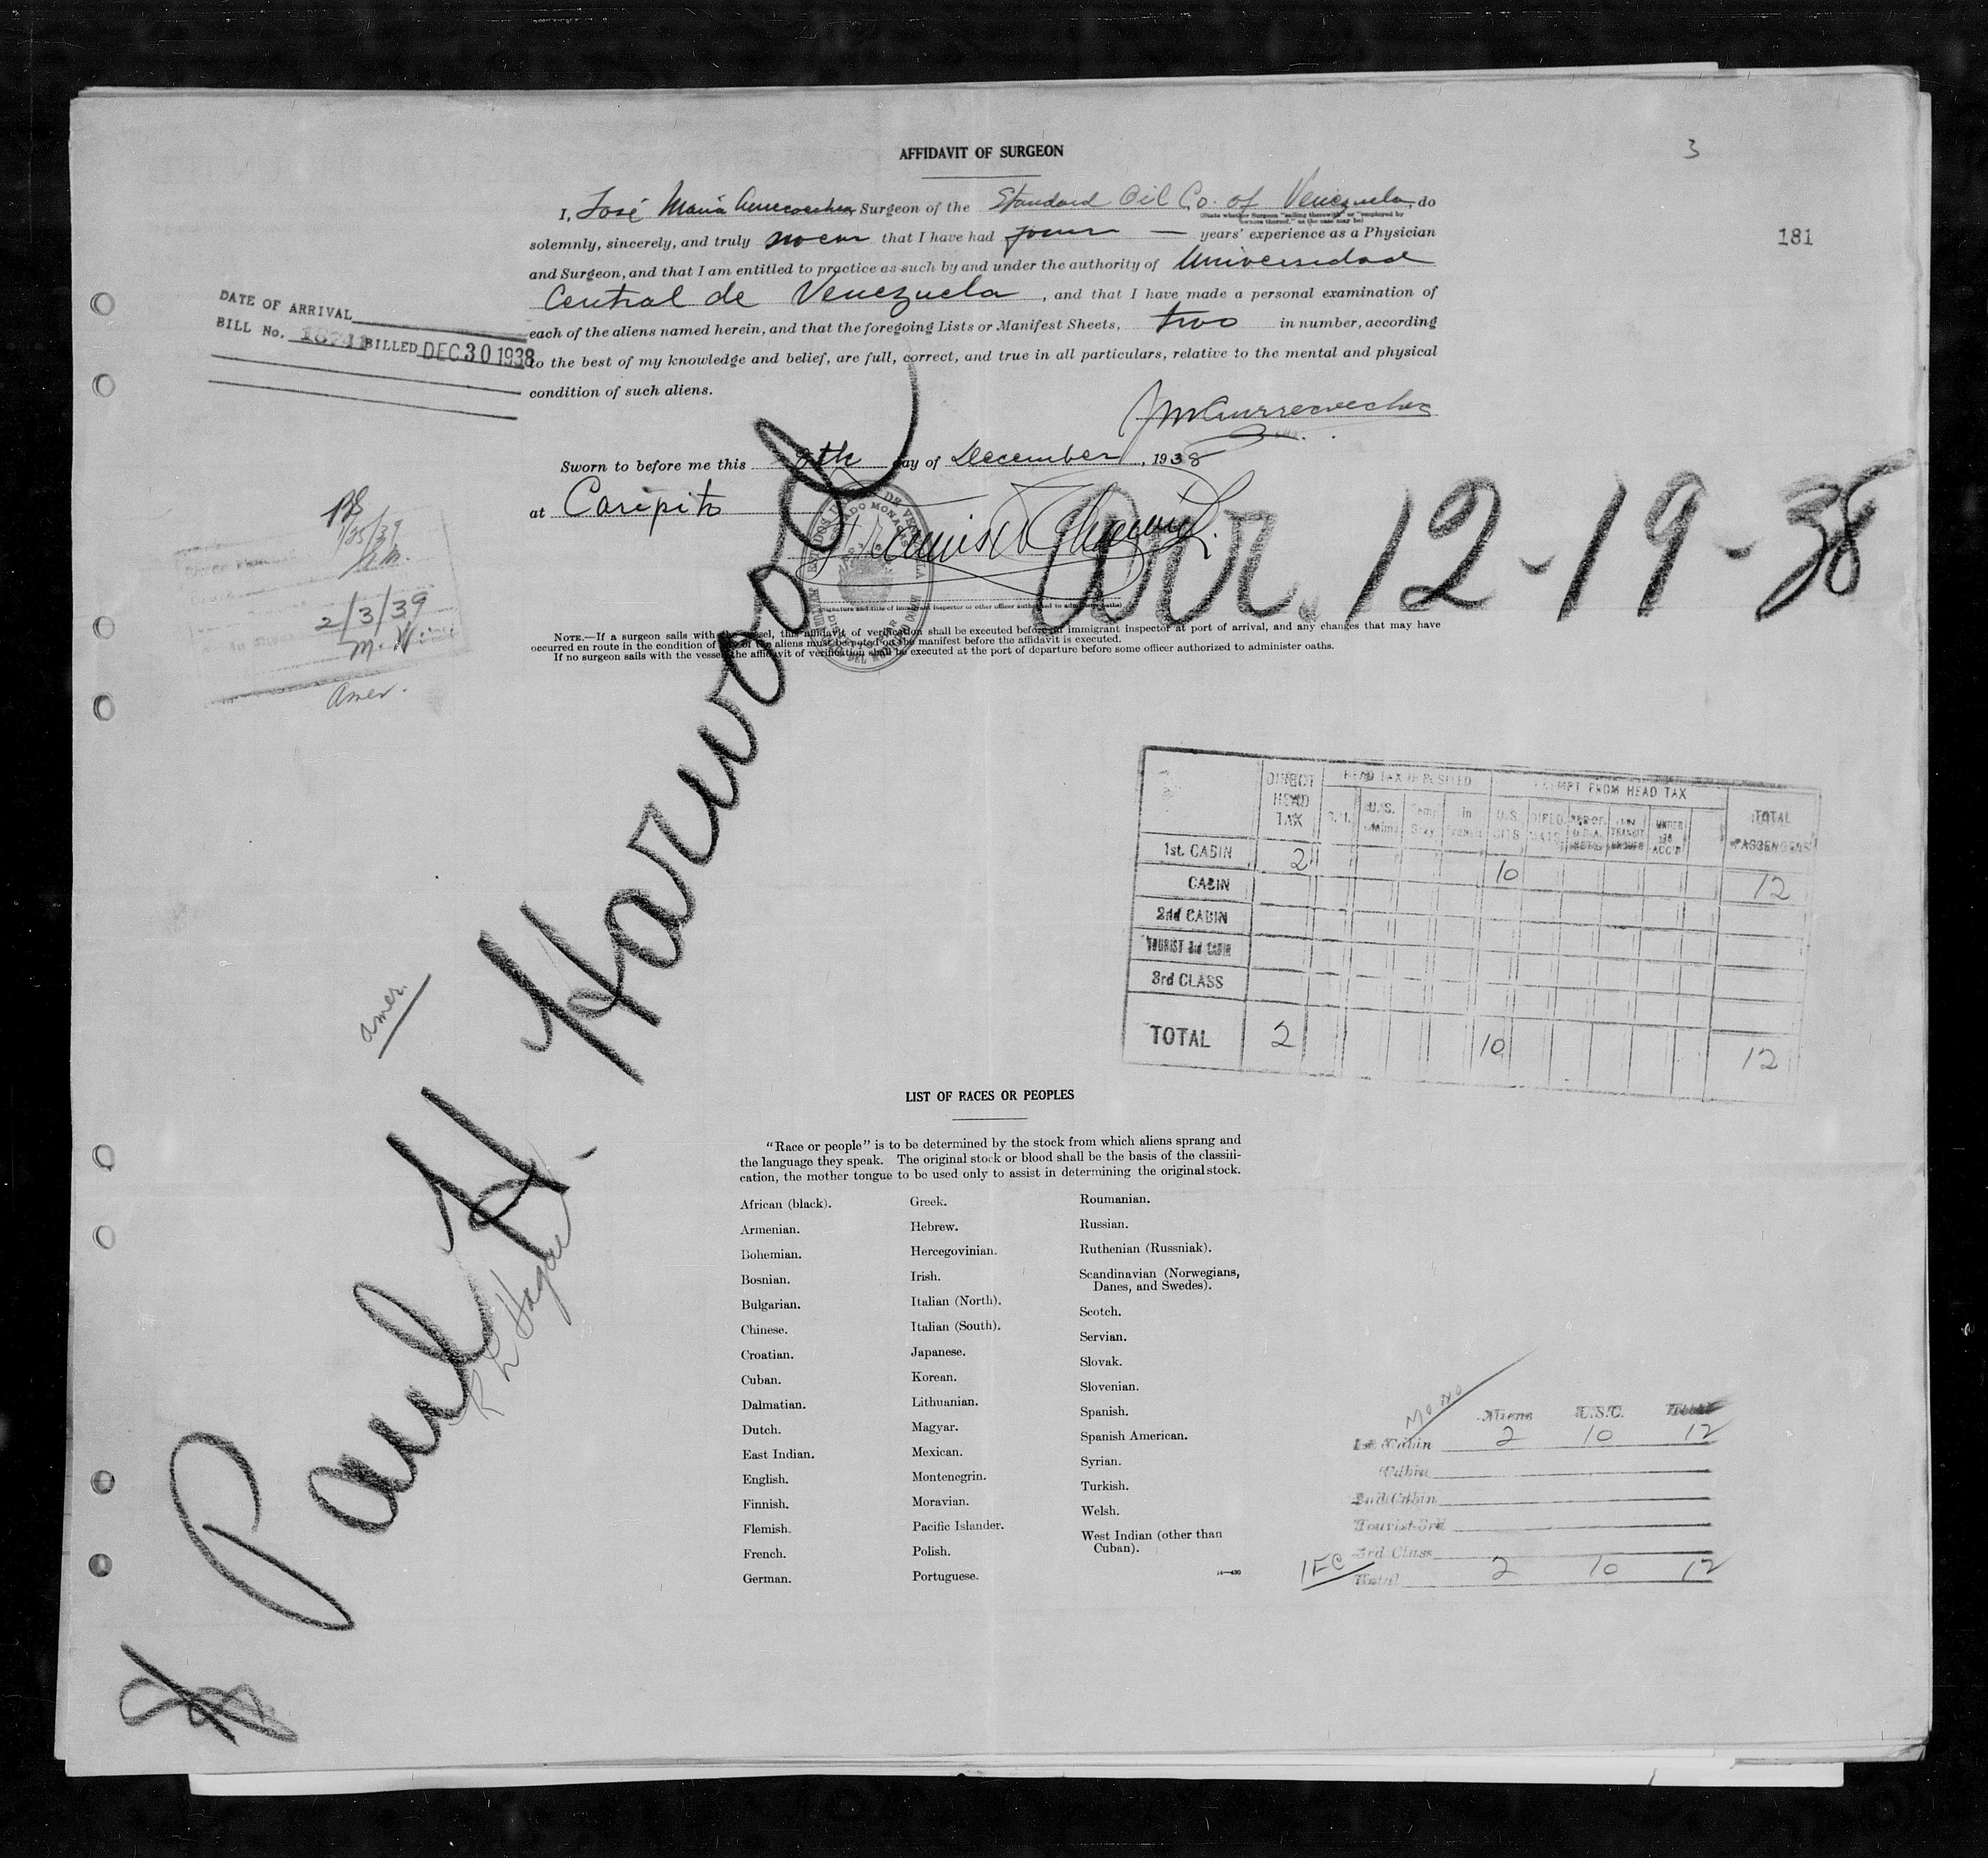 AFFIDAVIT OF SURGEON
3
I, José María Surgeon of the Standard Oil Co. of Venezuela, do
(State whether Surgeon "sailing therewith" or "employed by
owners thereof," as the case may be)
solemnly, sincerely, and truly swear that I have had four — years' experience as a Physician
181
and Surgeon, and that I am entitled to practice as such by and under the authority of Universidad
Central de Venezuela, and that I have made a personal examination of
each of the aliens named herein, and that the foregoing Lists or Manifest Sheets, two in number, according
to the best of my knowledge and belief, are full, correct, and true in all particulars, relative to the mental and physical
condition of such aliens.
DATE OF ARRIVAL
BILL No. BILLED DEC 30 1938
Sworn to before me this 8th day of December, 1938
at Caripito
Arr. 12-19-38
(Signature and title of immigrant inspector or other officer authorized to administer oaths)
NOTE.—If a surgeon sails with the vessel, this affidavit of verification shall be executed before an immigrant inspector at port of arrival, and any changes that may have
occurred en route in the condition of any of the aliens must be noted on the manifest before the affidavit is executed.
If no surgeon sails with the vessel the affidavit of verification shall be executed at the port of departure before some officer authorized to administer oaths.
2/3/39
Amer.
Paul H. Harwood
Amer.
DIRECT HEAD TAX
HEAD TAX DEPOSITED
EXEMPT FROM HEAD TAX
TOTAL PASSENGERS
1st. CABIN 2 10 12
CABIN
2nd CABIN
TOURIST 3rd CABIN
3rd CLASS
TOTAL 2 10 12
LIST OF RACES OR PEOPLES
"Race or people" is to be determined by the stock from which aliens sprang and
the language they speak. The original stock or blood shall be the basis of the classifi-
cation, the mother tongue to be used only to assist in determining the original stock.
African (black).
Armenian.
Bohemian.
Bosnian.
Bulgarian.
Chinese.
Croatian.
Cuban.
Dalmatian.
Dutch.
East Indian.
English.
Finnish.
Flemish.
French.
German.
Greek.
Hebrew.
Hercegovinian.
Irish.
Italian (North).
Italian (South).
Japanese.
Korean.
Lithuanian.
Magyar.
Mexican.
Montenegrin.
Moravian.
Pacific Islander.
Polish.
Portuguese.
Roumanian.
Russian.
Ruthenian (Russniak).
Scandinavian (Norwegians,
Danes, and Swedes).
Scotch.
Servian.
Slovak.
Slovenian.
Spanish.
Spanish American.
Syrian.
Turkish.
Welsh.
West Indian (other than
Cuban).
Aliens U.S.C. Total
1st Cabin 2 10 12
Cabin
2nd Cabin
Tourist 3rd
3rd Class
Total 2 10 12